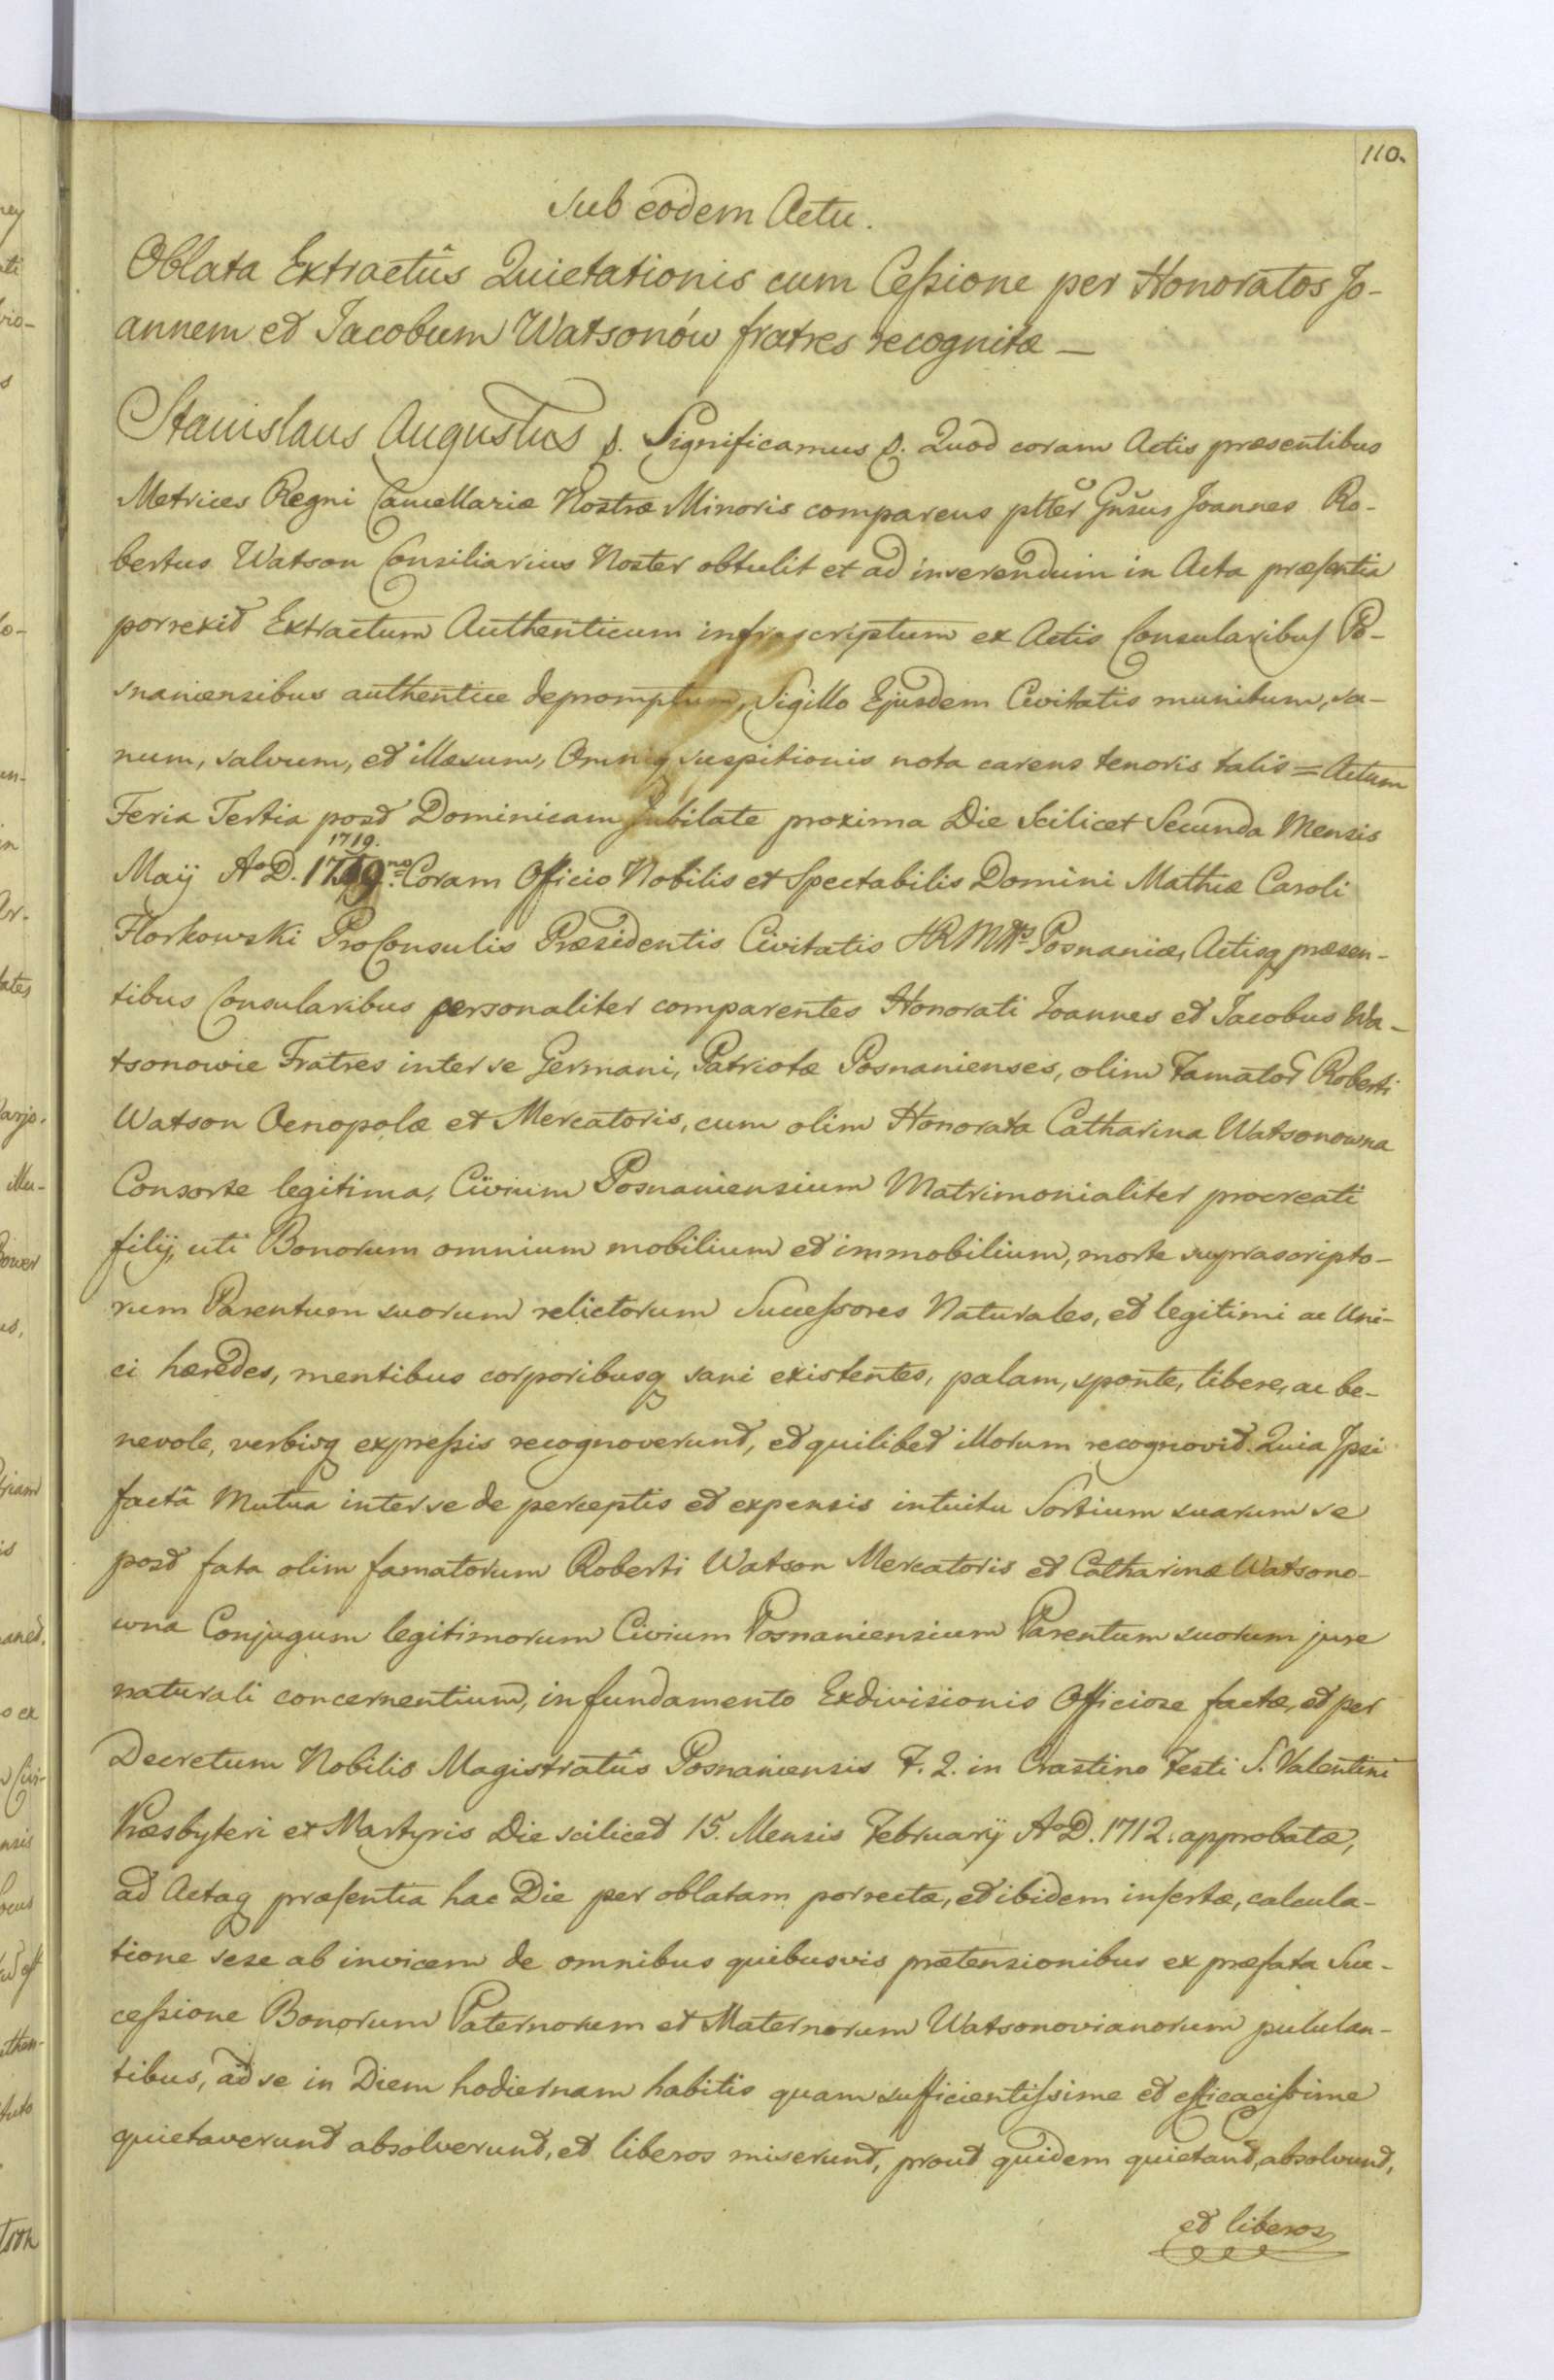 110.
Sub eodem Actu.
Oblata Extractûs Quietationis cum Cessione per Honoratos Jo-
annem et Jacobum Watsonów fratres recognitæ —
Stanislaus Augustus &. Significamus &. Quod coram Actis præsentibus
Metrices Regni Cancellariæ Nostræ Minoris comparens pltter Gnsus Joannes Ro-
bertus Watson Consiliarius Noster obtulit et ad inserendum in Acta præsentia
porrexit Extractum Authenticum infrascriptum ex Actis Consularibus Po-
snaniensibus authentice depromptum, Sigillo Ejusdem Civitatis munitum, sa-
num, salvum, et illæsum, Omniq suspitionis nota carens tenoris talis = Actum
Feria Tertia post Dominicam Jubilate proxima Die Scilicet Secunda Mensis
1719.
Maij Ao D. 1719no Coram Officio Nobilis et Spectabilis Domini Mathiæ Caroli
Florkowski ProConsulis Præsidentis Civitatis SRMtis Posnaniæ, Actisq præsen-
tibus Consularibus personaliter comparentes Honorati Joannes et Jacobus Wa-
tsonowie Fratres inter se Germani, Patriotæ Posnanienses, olim Famator Roberti
Watson Oenopolæ et Mercatoris, cum olim Honorata Catharina Watsonowna
Consorte legitima, Civium Posnaniensium Matrimonialiter procreati
filij, uti Bonorum omnium mobilium et immobilium, morte suprascripto-
rum Parentum suorum relictorum Successores Naturales, et legitimi ac Uni-
ci hæredes, mentibus corporibusq sani existentes, palam, sponte, libere, ac be-
nevole, verbisq expressis recognoverunt, et quilibet illorum recognovit. Quia Ipsi
factâ Mutua inter se de perceptis et expensis intuitu Sortium suarum se
post fata olim famatorum Roberti Watson Mercatoris et Catharinæ Watsono-
wna Conjugum legitimorum Civium Posnaniensium Parentum suorum jure
naturali concernentium, in fundamento Exdivisionis Officiose factæ, et per
Decretum Nobilis Magistratûs Posnaniensis F. 2. in Crastino Festi S. Valentini
Præsbyteri et Martyris Die scilicet 15. Mensis Februarij Ao D. 1712. approbatæ,
ad Actaq præsentia hac Die per oblatam porrectæ, et ibidem insertæ, calcula-
tione sese ab invicem de omnibus quibusvis prætensionibus ex præfata Suc-
cessione Bonorum Paternorum et Maternorum Watsonovianorum pululan-
tibus, ad se in Diem hodiernam habitis quam sufficientissime et efficacissime
quietaverunt absolverunt, et liberos miserunt, prout quidem quietant, absolvunt,
et liberos